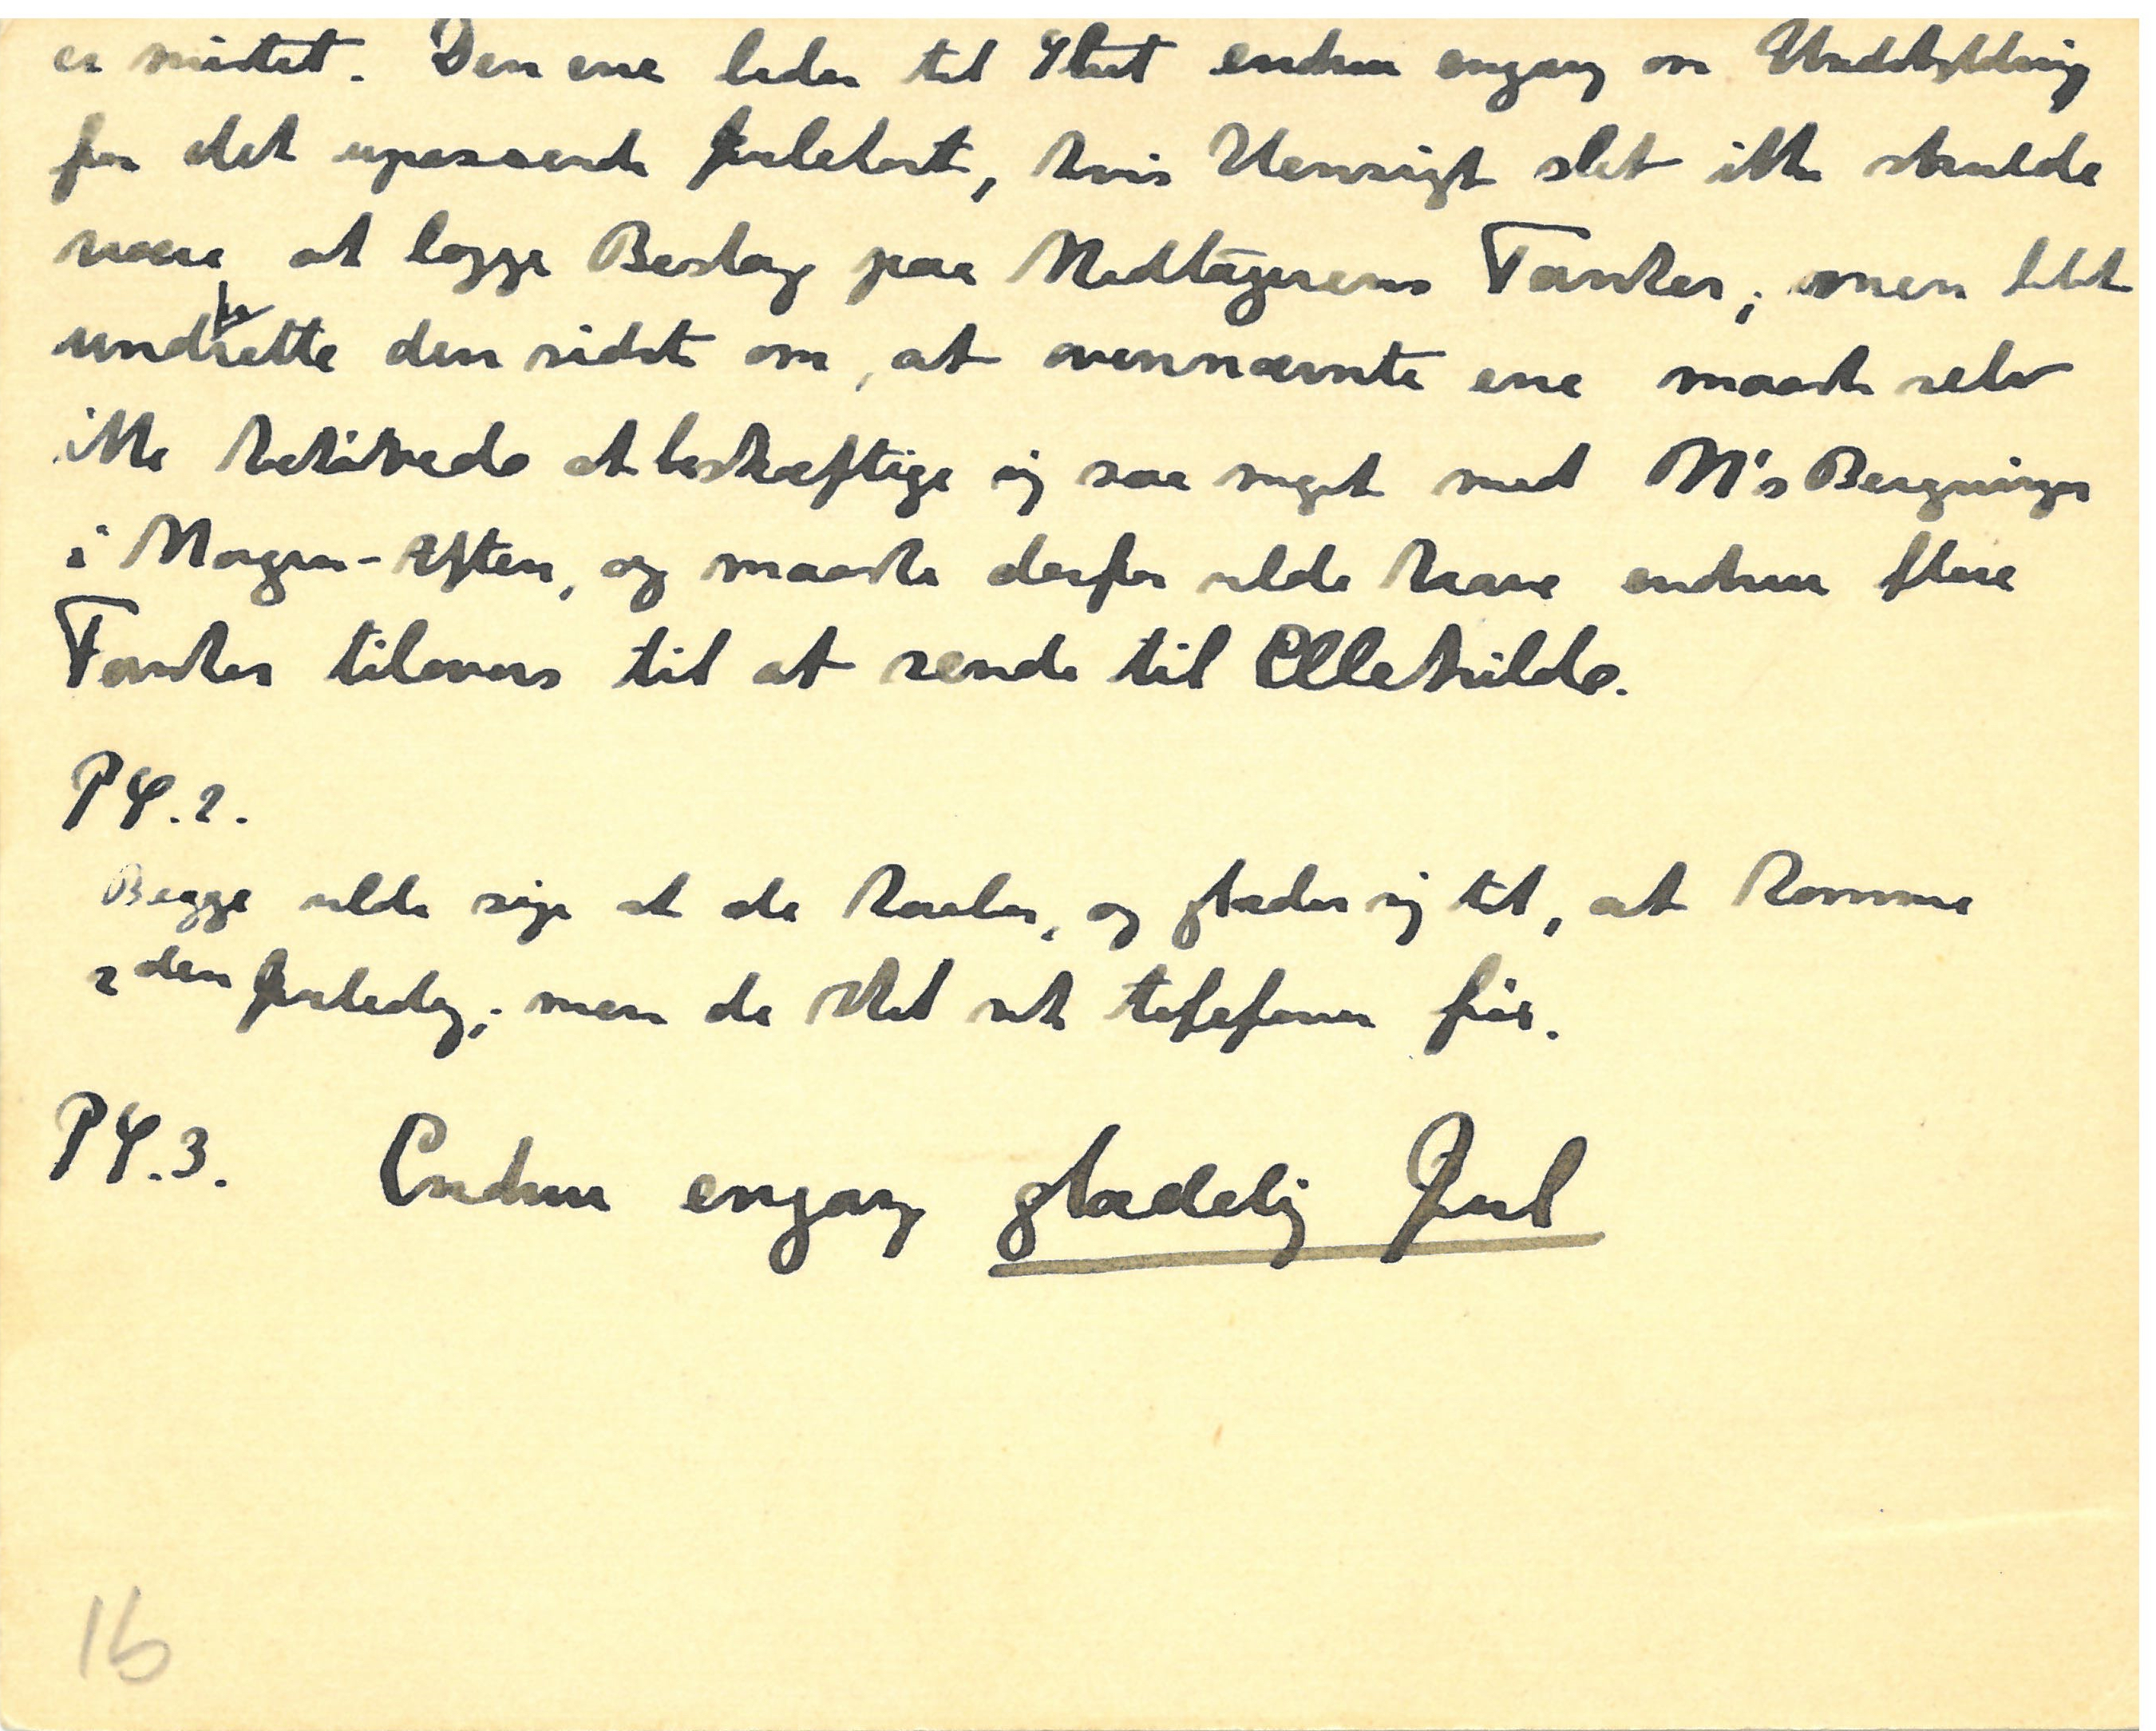 er mistet. Den ene beder til Slut endnu engang om Undskyldning
for det upassende Julekort, hvis Hensigt slet ikke skulde
være at lægge Beslag paa Modtagerens Tanker; men blot
underrette den sidste om, at ovennævnte ene maaske selv
ikke behøvede at beskæftige sig saa meget med N's Beregninger
i Morgen-Aften, og maaske derfor vilde have endnu flere
Tanker tilovers til at sende til Ellekilde.
PS.2.
Begge vilde sige at de haaber, og glæder sig til, at komme
2den Juledag; men de skal nok telefonere før.
PS.3. Endnu engang glædelig Jul
16